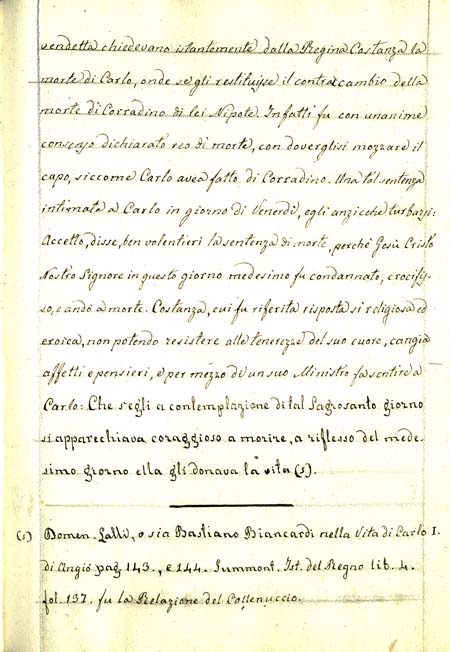 vendetta chiedevano istantemente dalla Regina Costanza la
morte di Carlo, onde se gli restituisse il contraccambio della
morte di Corradino di lei Nipote. Infatti fu con unanime
consenso dichiarato reo di morte, con doverglisi mozzare il
capo, siccome Carlo avea fatto di Corradino. Una tal sentenza
intimata a Carlo in giorno di Venerdì, egli anzicche turbarsi:
Accetto, disse, ben volentieri la sentenza di morte, perché Gesù Cristo
Nostro Signore in questo giorno medesimo fu condannato, crocifis-
so, e andò a morte. Costanza, cui fu riferita risposta sì religiosa ed
eroica, non potendo resistere alle tenerezze del suo cuore, cangia
affetti e pensieri, e per mezzo di un suo Ministro fa sentire a
Carlo: Che s'egli a contemplazione di tal Sagrosanto giorno
si apparechiava coraggioso a morire, a riflesso del mede-
simo giorno ella gli donava la vita (s).
(s) Domen. Lalli, o sia Bastiano Biancardi nella Vita di Carlo I.
di Angiò pag. 143., e 144. Summont. Ist. del Regno lib. 4.
fol. 137. fu la Relazione del Collenuccio.